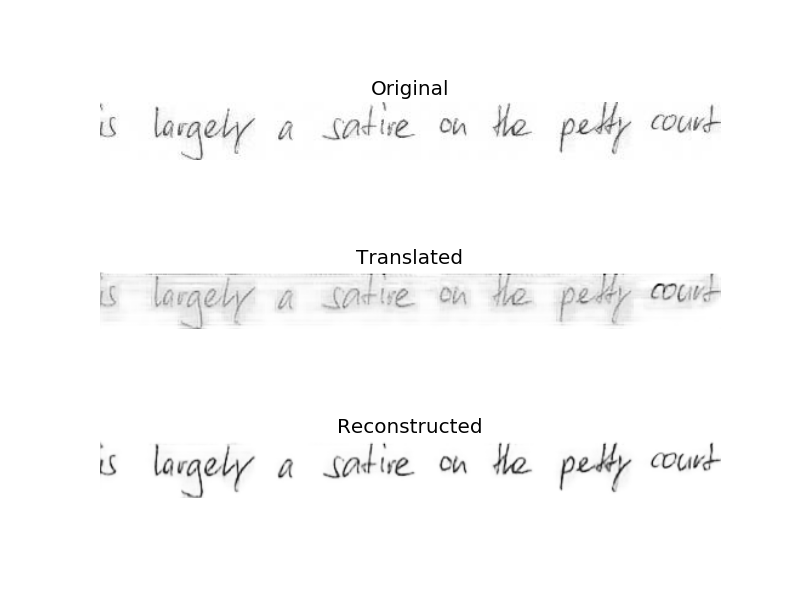 Original
is largely a satire on the petty court
Translated
is largely a satire on the petty court
Reconstructed
is largely a satire on the petty court